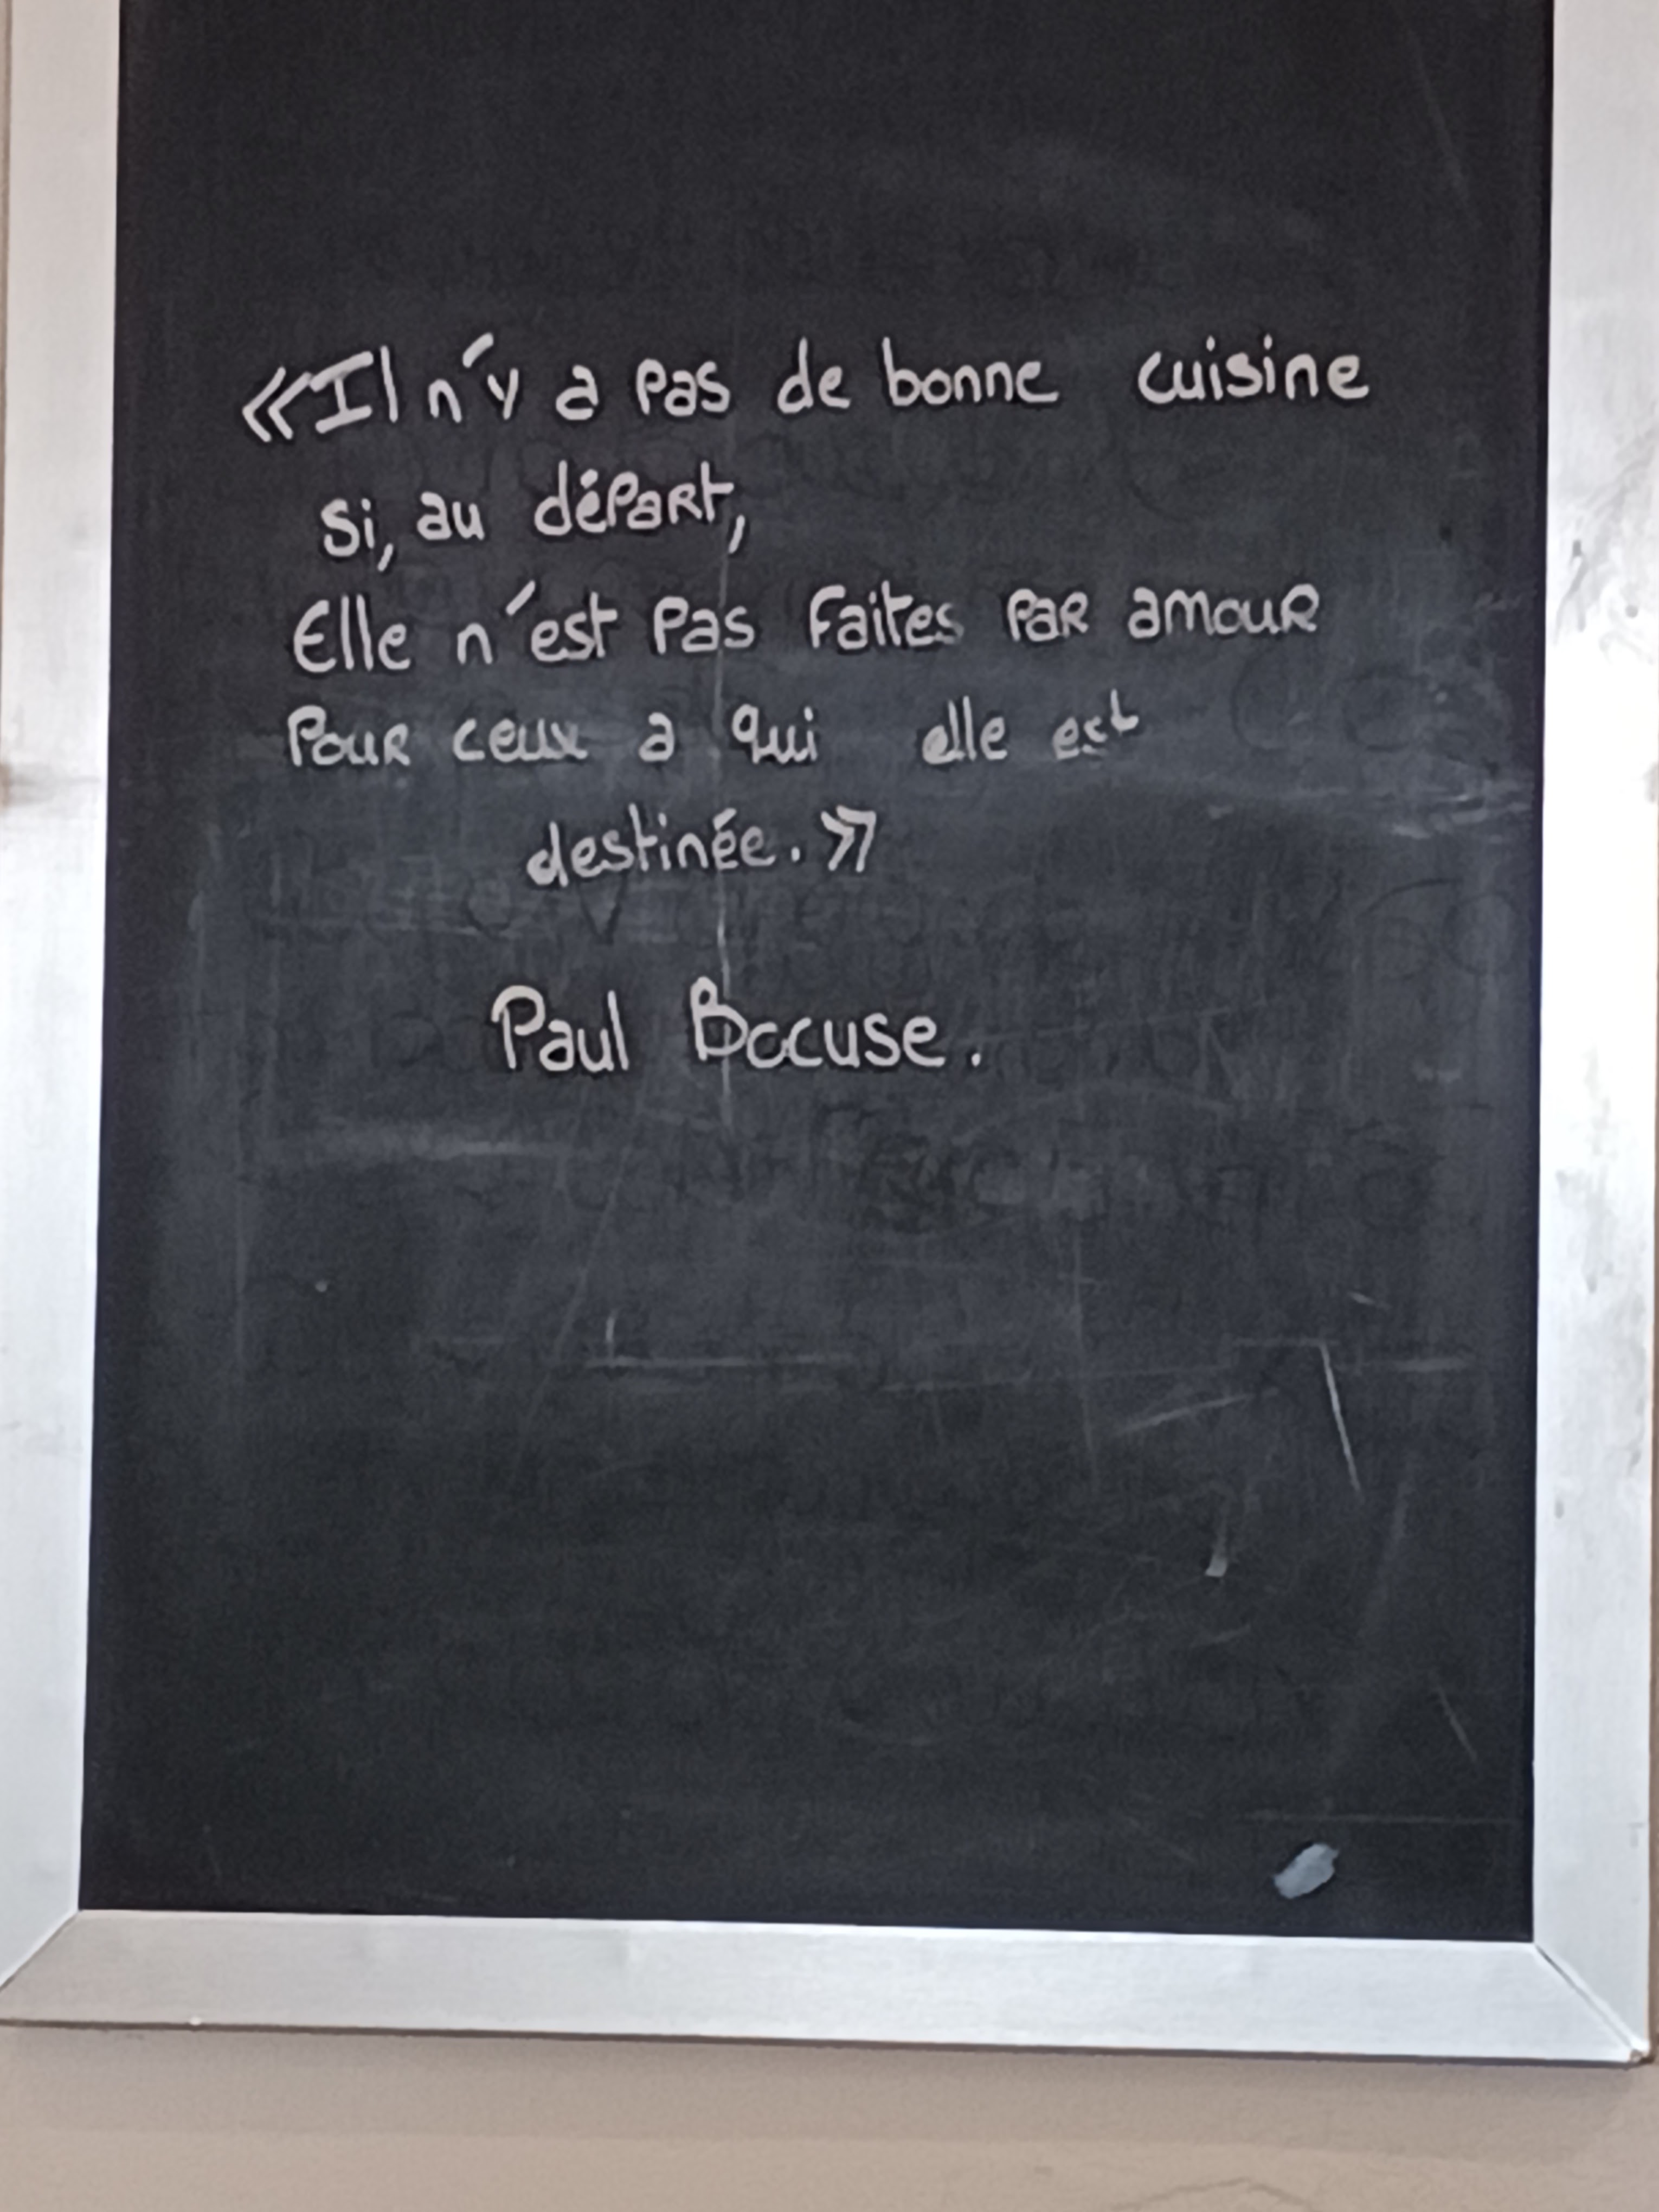 «Il n'y a pas de bonne cuisine
si, au départ,
Elle n'est pas faites par amour
Pour ceux a qui elle est
destinée.»
Paul Bocuse.